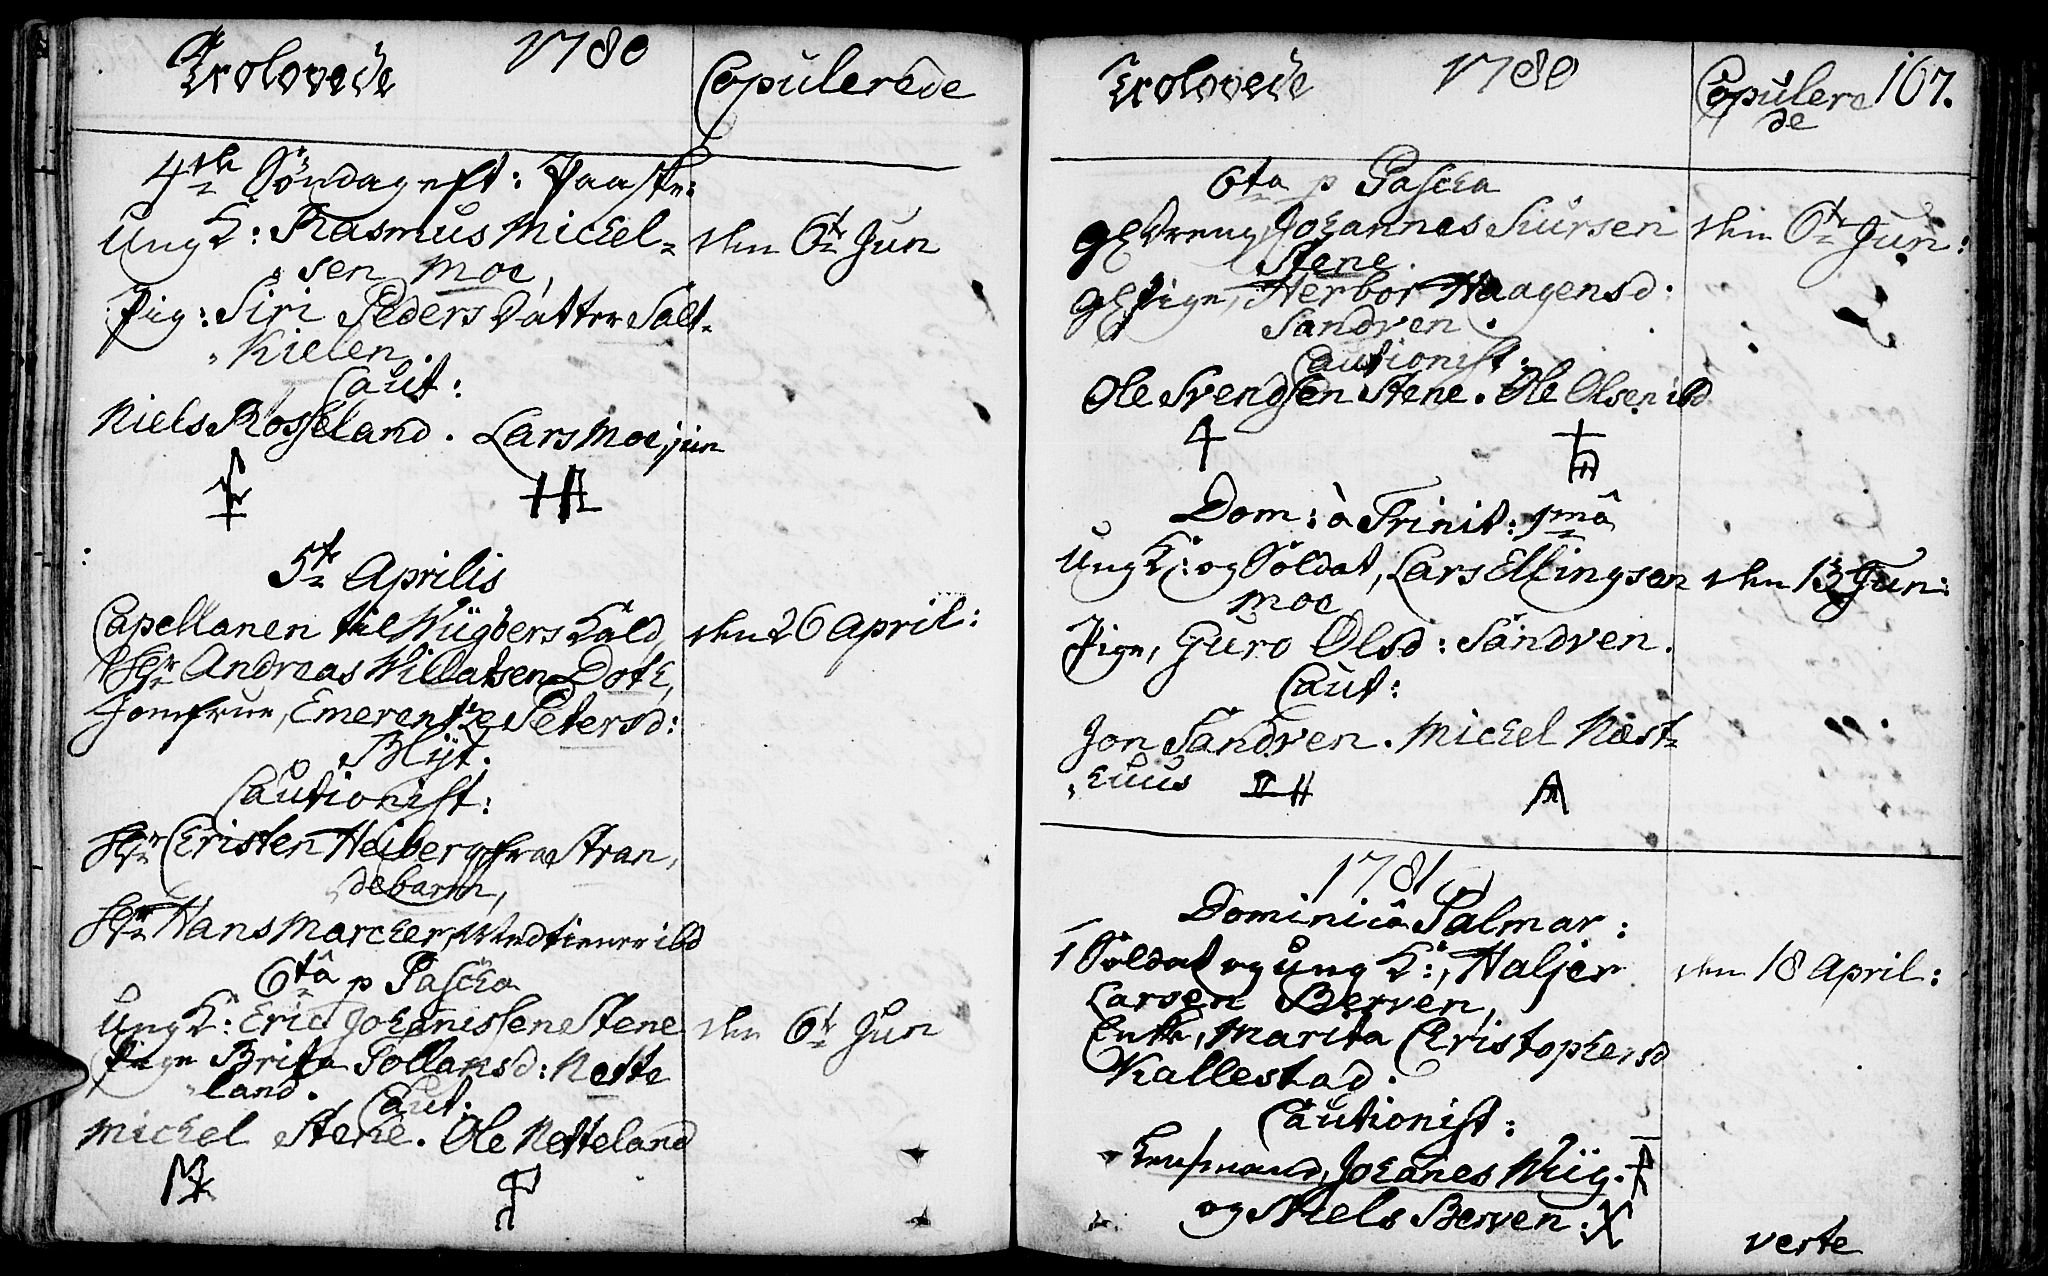 Trolovede 1780 Copulerede
4de Söndag eft: Paaske:
Ung K: Rasmus Mickel= den 6te Jun
sen Moe,
Pig: Siri Peders Datter Salt=
Kielen.
Caut:
Niels Rosseland. Lars Moe, jun
5te Aprilis
Capellanen til Wiigöers Kald, den 26 April:
Hr Andreas Willatsen Dote,
Jomfrue, Emerentze Petersd:
Blÿt.
Cautionist:
Hr Christen Heiberg fra Stran,
debarm,
Hr Hans Marcher, Medtiener ibd
6tâ p Pascha
Ung K: Eric Johanissen Stene den 6te Jun
Pige Brita Pollansd: Nette
land. Caut:
Michel Stene. Ole Netteland
Trolovede 1780 Copulere 167.
de
6ta p Pascha
Johannes Siursen den 6te Jun:
Stene.
Pige, Herbor Haagensd:
Sandven.
Cautionist:
Ole Svendsen Stene. Ole Olsen ibd
Dom: à Trinit: 1mâ
Ung K: og Soldat, Lars Ellingsen den 13 Jun:
Moe
Pige, Guro Olsd: Sandven.
Caut:
Jon Sandven. Mickel Næst=
huus
1781
Dominicâ Palmar:
1 Soldat og ung K:, Haljer den 18 April:
Larsen Berven,
Enke, Marita Christophersd
Kallestad.
Cautionist:
Lensmand, Johanes Wiig.
og Niels Berven:
verte